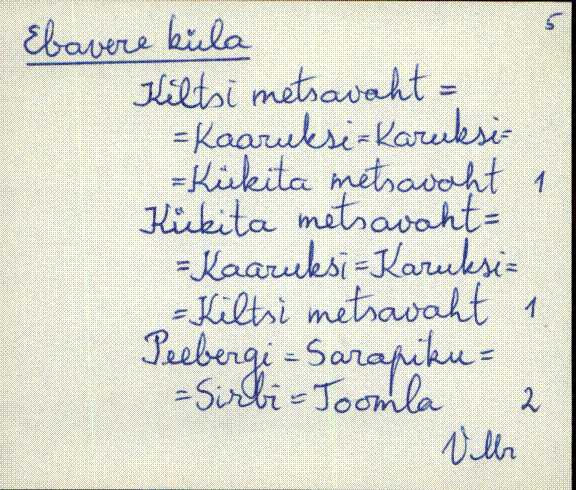 5
Ebavere küla
Kiltsi metsavaht =
=Kaaruksi=Karuksi=
=Kükita metsavaht 1
Kükita metsavaht=
=Kaaruksi=Karuksi=
=Kiltsi metsavaht 1
Peebergi = Sarapiku =
=Sirbi = Toomla 2